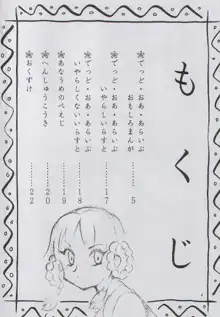 もくじ
❀でっど・おあ・あらいぶ
おもしろまんが………5
❀でっど・おあ・あらいぶ
いやらしいらすと………17
❀でっど・おあ・あらいぶ
いやらしくないいらすと………18
❀あなうめのぺえじ………19
❀へんしゅうこうき………20
❀おくずけ………22